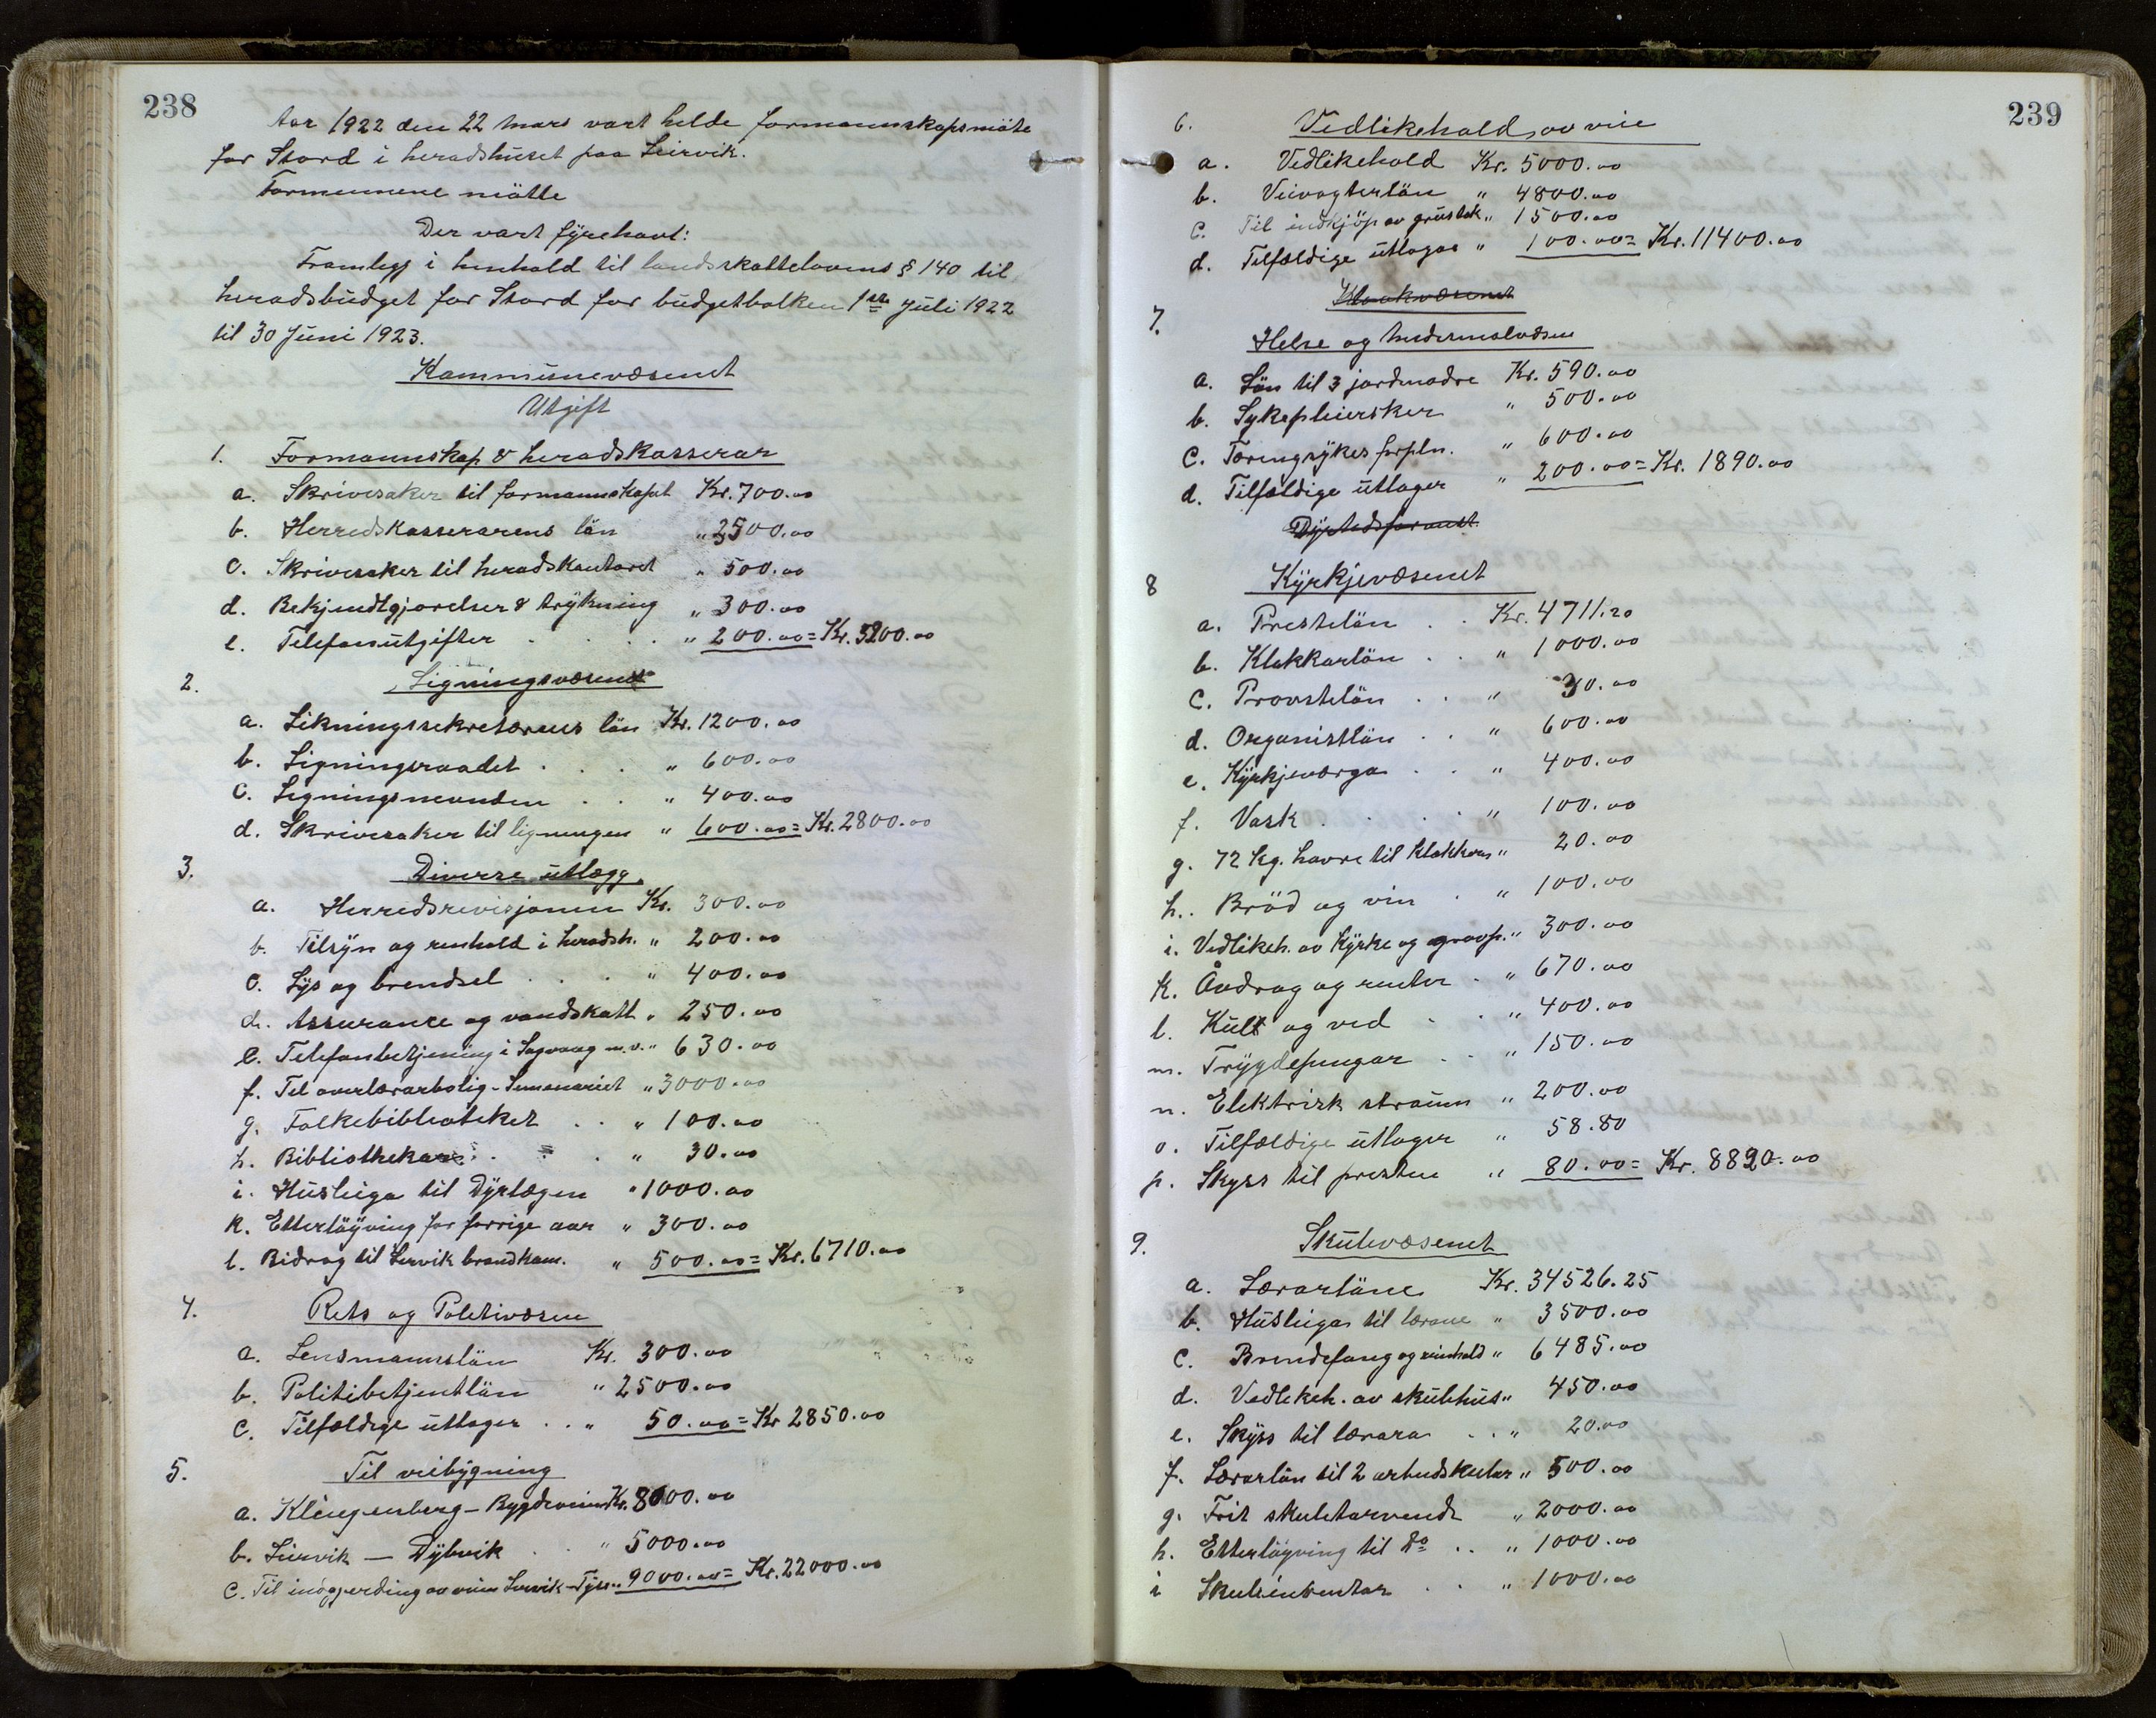 238
Aar 1922 den 22 mars vart helde formannskapsmöte
for Stord i heradshuset paa Leirvik.
Formennene mötte
Der vart fyrehavt:
Framlegg i henhold til landsskattelovens § 140 til
heradsbudget for Stord for budgetbolken 1ste Juli 1922
til 30 Juni 1923.
Kommunevæsenet
Utgift
1. Formannskap & heradskasserar
a. Skrivesaker til formannskapet Kr. 700.00
b. Herredskasserarens lön " 2500.00
c. Skrivesaker til heradskontoret " 500.00
d. Bekjendtgjorelser & trykning " 300.00
e. Telefonutgifter . . . " 200.00 = Kr. 5200.00
2. Ligningsvæsenet
a. Likningssekretærens lön Kr. 1200.00
b. Ligningsraadet . . . " 600.00
c. Ligningsnemnden . . " 400.00
d. Skrivesaker til ligningen " 600.00 = Kr. 2800.00
3. Diverse utlegg.
a. Herredsrevisjonen Kr. 300.00
b. Tilsyn og renhold i heradsh. " 200.00
c. Lys og brendsel . . . " 400.00
d. Assurance og vandskatt " 250.00
e. Telefonbetjening i Sagvaag m.v. " 630.00
f. Til overlærarbolig - Semenariet " 3000.00
g. Folkebiblioteket . . " 100.00
h. Bibliothekar . . . " 30.00
i. Husleiga til Dyrlægen " 1000.00
k. Etterlöyving for forrige aar " 300.00
l. Bidrag til Lervik brandkom. " 500.00 = Kr. 6710.00
4. Rets og Politivæsen
a. Lensmannslön Kr. 300.00
b. Politibetjentlön " 2500.00
c. Tilfældige utlager . . " 50.00 = Kr 2850.00
5. Til veibygning
a. Klingenberg - Bygdeveien Kr. 8000.00
b. Leirvik — Dybvik . . " 5000.00
c. Til indgjerding av veien Lervik - Tyse " 9000.00 = Kr. 22000.00
239
6. Vedlikehold av veie
a. Vedlikehold Kr. 5000.00
b. Veivogterlön " 4800.00
c. Til indkjöp av grustak " 1500.00
d. Tilfældige utlagar " 100.00 = Kr. 11400.00
7.
Helse og Medermalvæsen
a. Lön til 3 jordmodre Kr. 590.00
b. Sykepleiersker " 500.00
c. Tæringsykes forpln. " 600.00
d. Tilfældige utlager " 200.00 = Kr. 1890.00
8 Kyrkjevæsenet
a. Prestelön . . Kr. 4711.20
b. Klokkarlön . . " 1000.00
c. Provstelön . . " 30.00
d. Organistlön . . " 600.00
e. Kyrkjeværga . . " 400.00
f. Vask . . . . " 100.00
g. 72 kg. havre til Klokkaren " 20.00
h. Bröd og vin . " 100.00
i. Vedlikeh. av Kyrke og gravp. " 300.00
k. Åvdrag og renter . " 670.00
l. Kull og ved . . " 400.00
m. Trygdepengar . . " 150.00
n. Elektrisk straum " 200.00
o. Tilfældige utlager " 58.80
p. Skyss til presten " 80.00 = Kr. 8820.00
9. Skulevæsenet
a. Lærarlöne Kr. 34526.25
b. Husleigar til lærarne " 3500.00
c. Brendefang og reinhald " 6485.00
d. Vedlikeh. av skulehus " 450.00
e. Skyss til lærara . . " 20.00
f. Lærarlön til 2 arbeidskular " 500.00
g. Frit skuletarvende " 2000.00
h. Etterlöyving til Do . . " 1000.00
i Skuleinventar . . " 1000.00